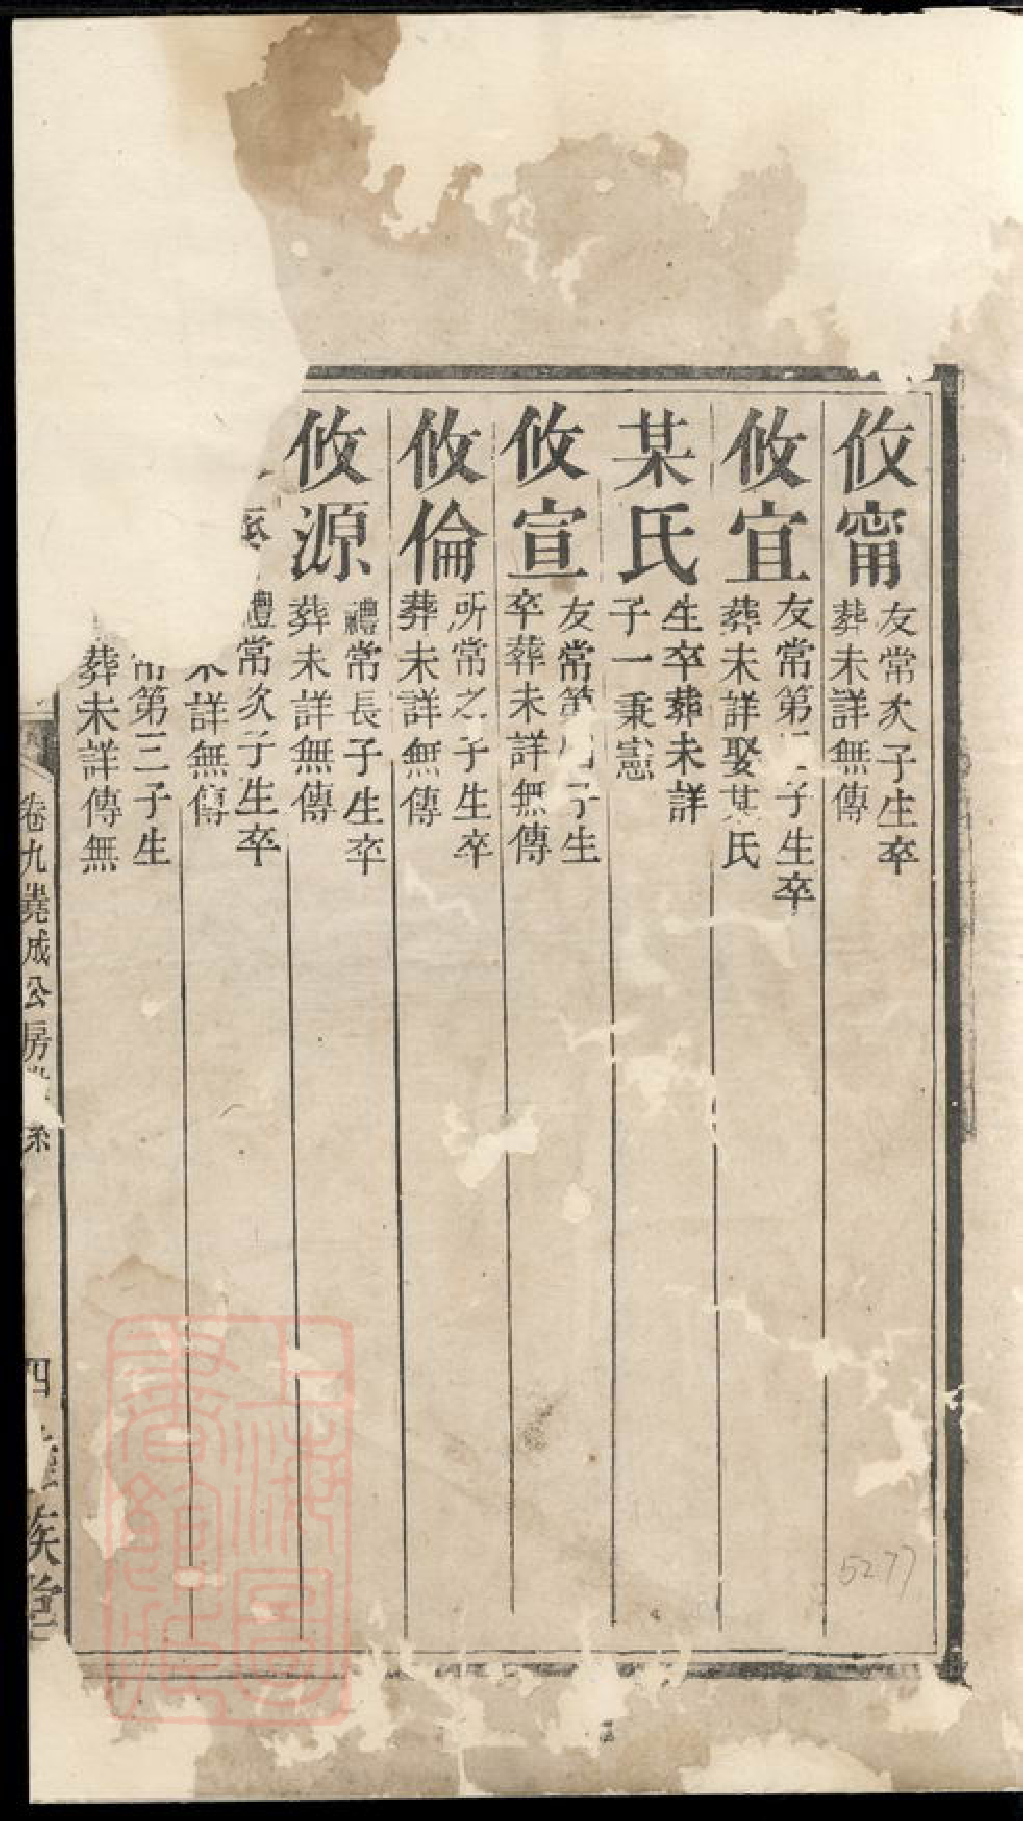 攸甯
友常次子生卒
葬未詳無傳
攸宜
友常第子生卒
葬未詳娶某氏
某氏
生卒葬未詳
子一秉憲
攸宣
友常第子生
卒葬未詳無傳
攸倫
所常之子生卒
葬未詳無傳
攸源
禮常長子生卒
葬未詳無傳
禮常次子生卒
詳無傳
常第三子生
葬未詳傳無
卷九堯成公房世系
四
族堂
上海圖書館藏
5277